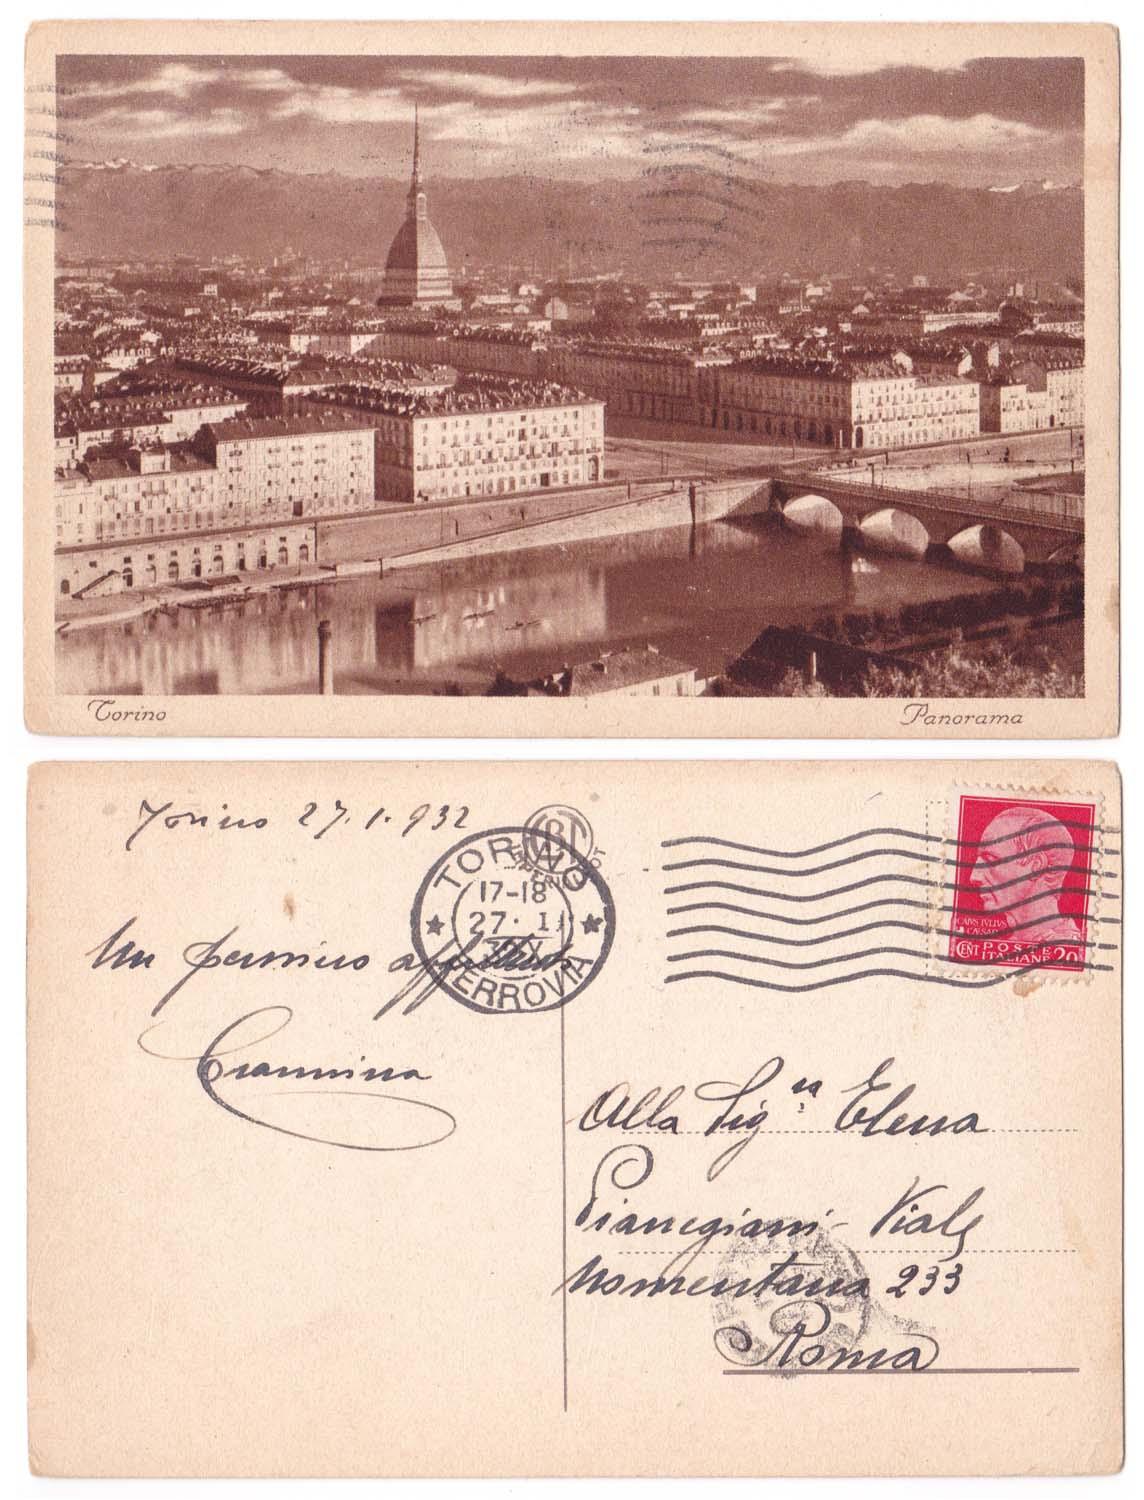 Torino
Panorama
Torino 27.1.932
TORINO
17-18
27. I
FERROVIA
CAIVS IVLIVS
CAESAR
CENT POSTE
ITALIANE 20
Un pensiero
Giannina
Alla Sig.ra Elena
Pianegiani - Viale
Nomentana 233
Roma